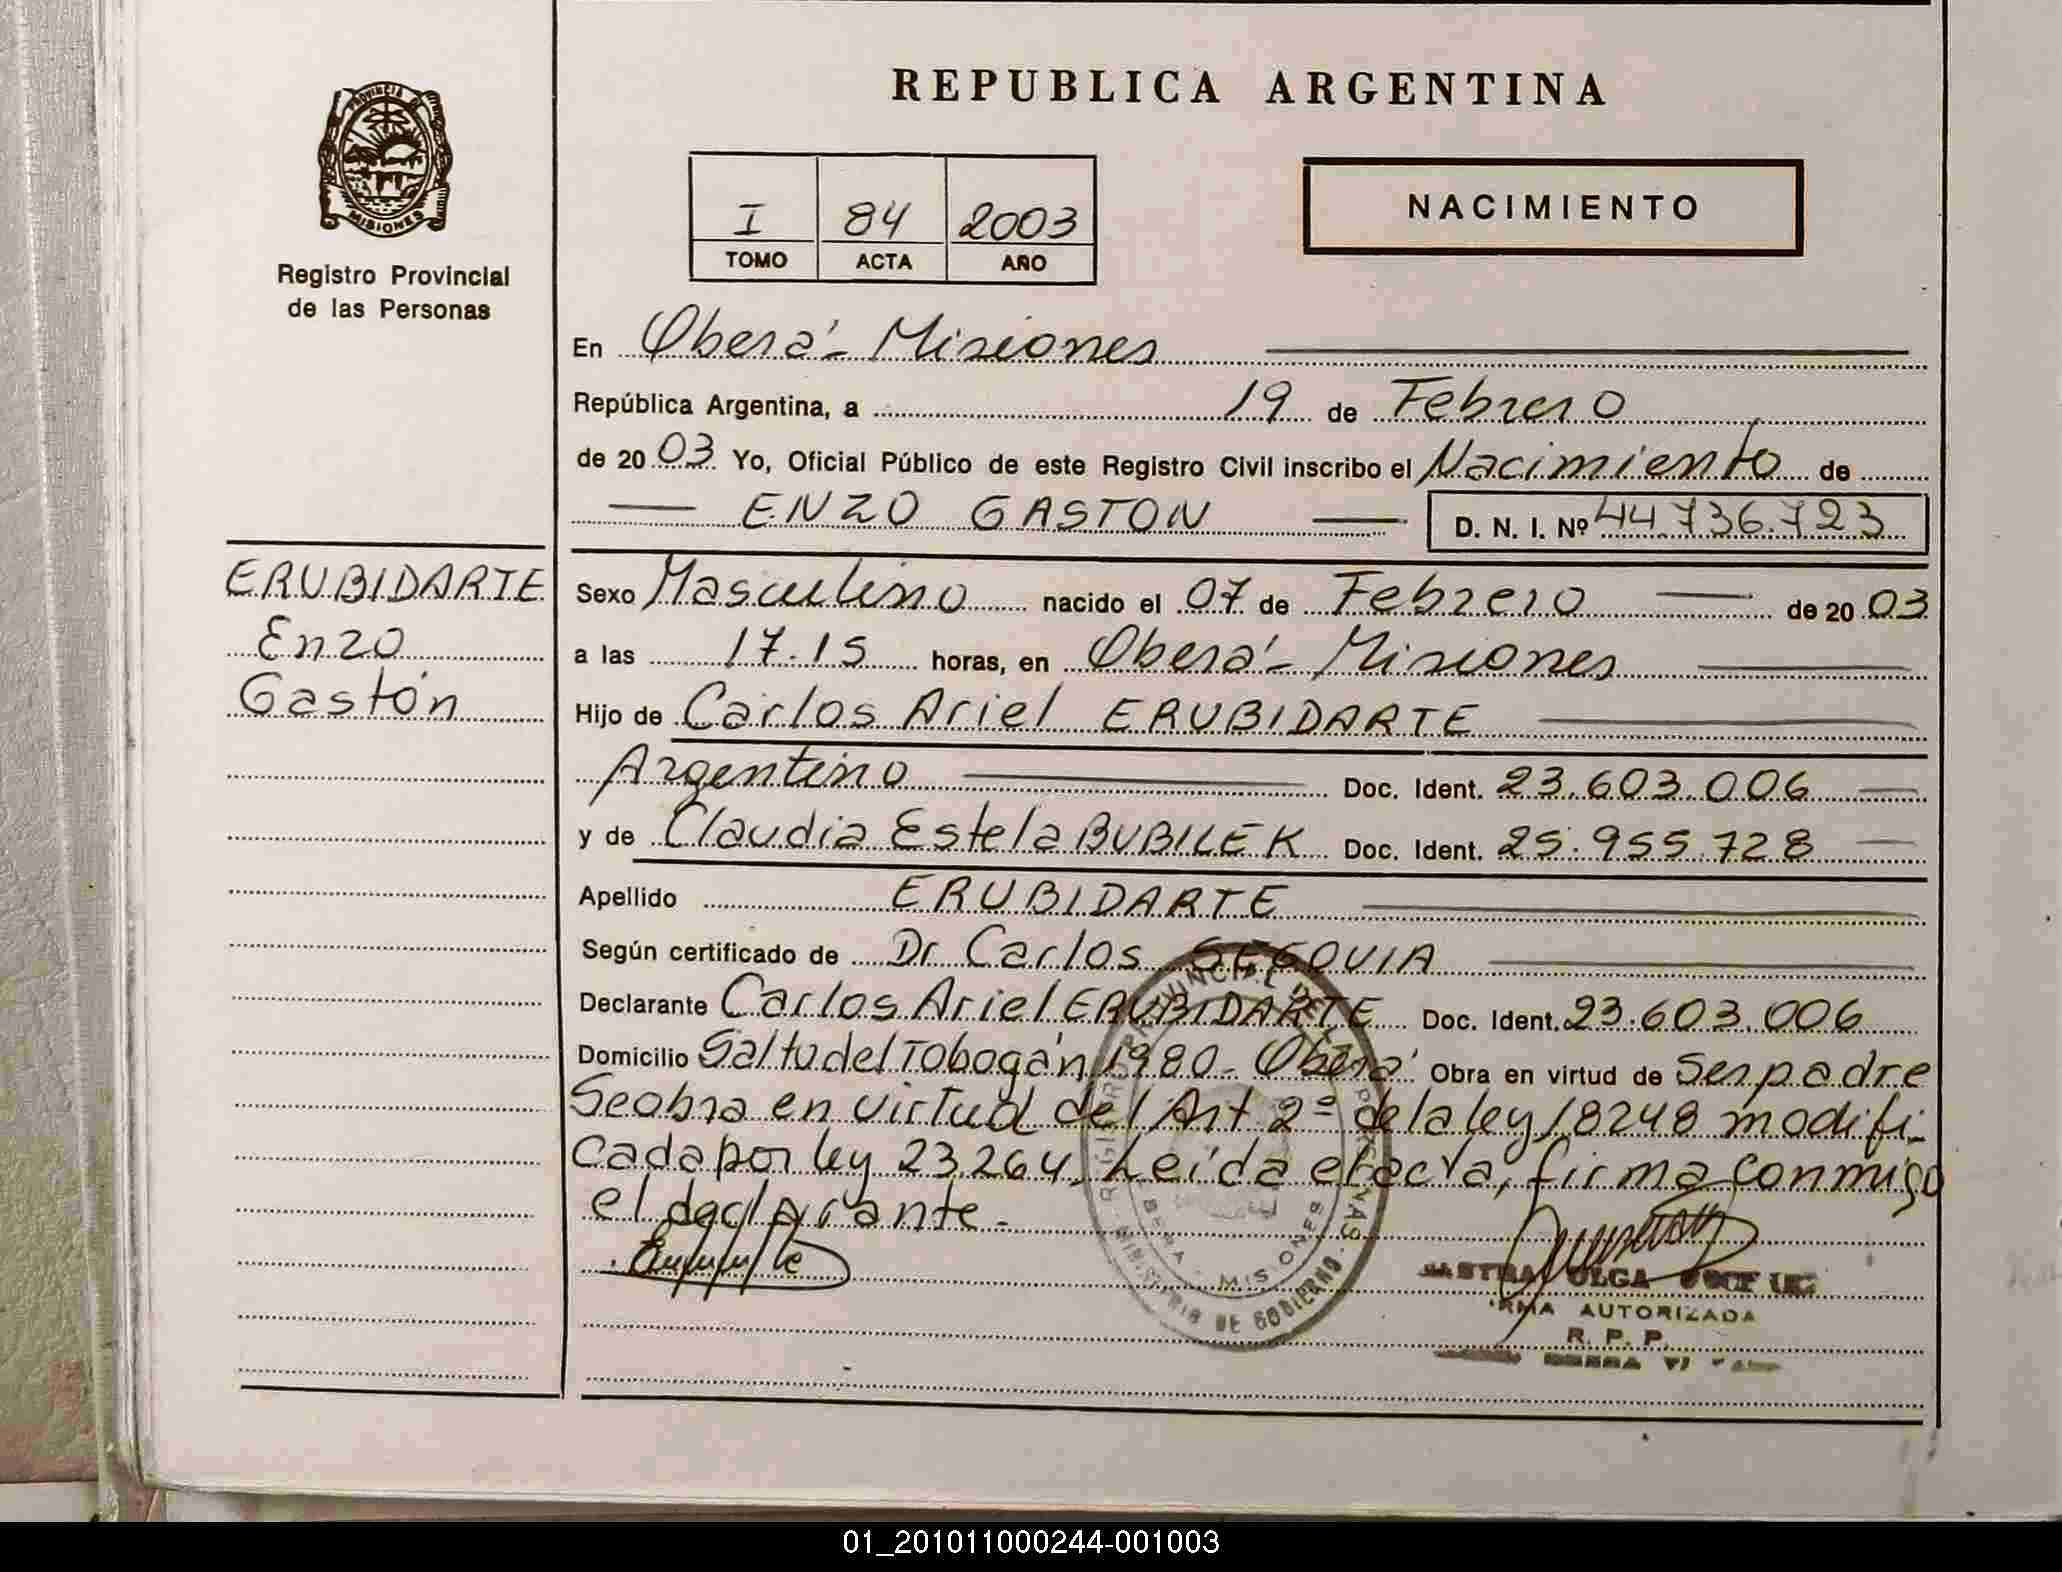 REPUBLICA ARGENTINA
PROVINCIA DE
MISIONES
Registro Provincial
de las Personas
I 84 2003
TOMO ACTA AÑO
NACIMIENTO
En Oberá - Misiones
República Argentina, a 19 de Febrero
de 2003 Yo, Oficial Público de este Registro Civil inscribo el Nacimiento de
ENZO GASTON D. N. I. Nº 44.736.723
ERUBIDARTE
Enzo
Gastón
Sexo Masculino nacido el 07 de Febrero de 2003
a las 17.15 horas, en Oberá - Misiones
Hijo de Carlos Ariel ERUBIDARTE
Argentino Doc. Ident. 23.603.006
y de Claudia Estela BUBILEK Doc. Ident. 25.955.728
Apellido ERUBIDARTE
Según certificado de Dr Carlos SEGOVIA
Declarante Carlos Ariel ERUBIDARTE Doc. Ident. 23.603.006
Domicilio Salto del Tobogán 1980 - Oberá Obra en virtud de Ser padre
Se obra en virtud del Art 2º de la ley 18248 modifi-
cada por ley 23.264, Leída el acta, firma conmigo
el declarante.-
OLGA
AUTORIZADA
R. P. P.
MISIONES
MINISTERIO DE GOBIERNO
01_201011000244-001003